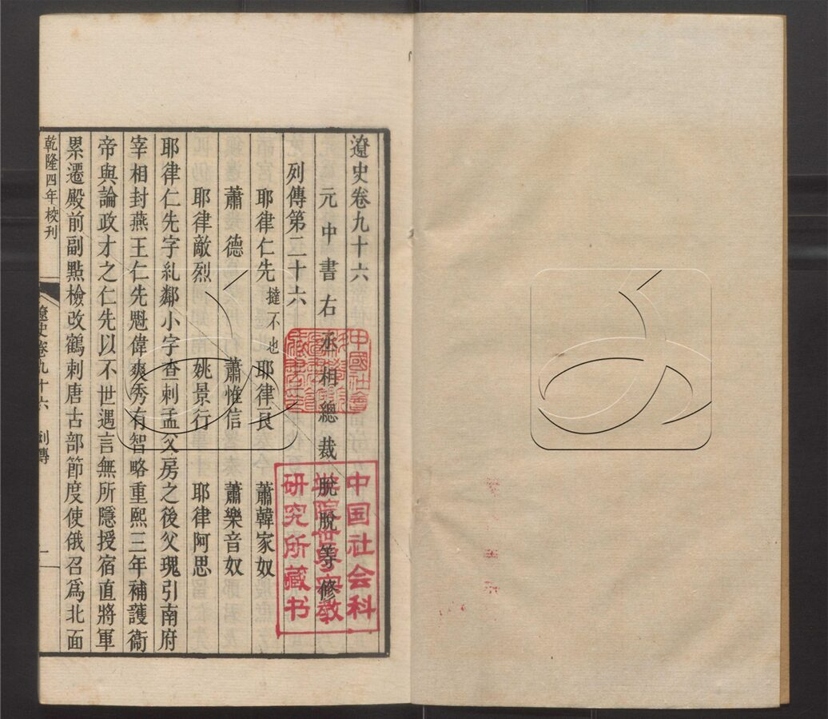 遼史卷九十六
元中書右丞相總裁脫脫等修
列傳第二十六
耶律仁先 撻不也 耶律良 蕭韓家奴
蕭德 蕭惟信 蕭樂音奴
耶律敵烈 姚景行 耶律阿思
耶律仁先字糺鄰小字查刺孟父房之後父瑰引南府
宰相封燕王仁先魁偉爽秀有智略重熙三年補護衞
帝與論政才之仁先以不世遇言無所隱授宿直將軍
累遷殿前副點檢改鶴刺唐古部節度使俄召爲北面
乾隆四年校刊
遼史卷九十六 列傳 一
中国社会科
研究所藏书